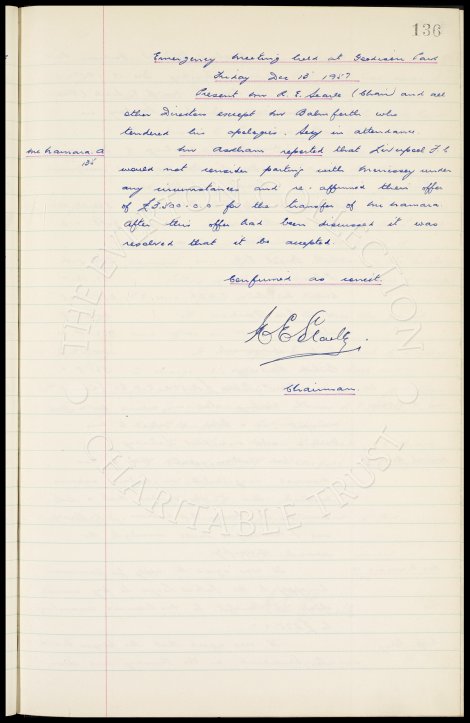 136
Emergency Meeting held at Goodison Park
Friday Dec 13 1957
Present Mr R. E. Searle (Chair) and all
other Directors except Mr Balmforth who
tendered his apologies. Secy in attendance.
McNamara. A
Mr Askham reported that Liverpool F.C
would not consider parting with Morrissey under
any circumstances and re-affirmed their offer
of £3,500-0-0 for the transfer of McNamara.
After this offer had been discussed it was
resolved that it be accepted.
Confirmed as correct.
R E Searle.
Chairman.
THE EVERTON COLLECTION
CHARITABLE TRUST